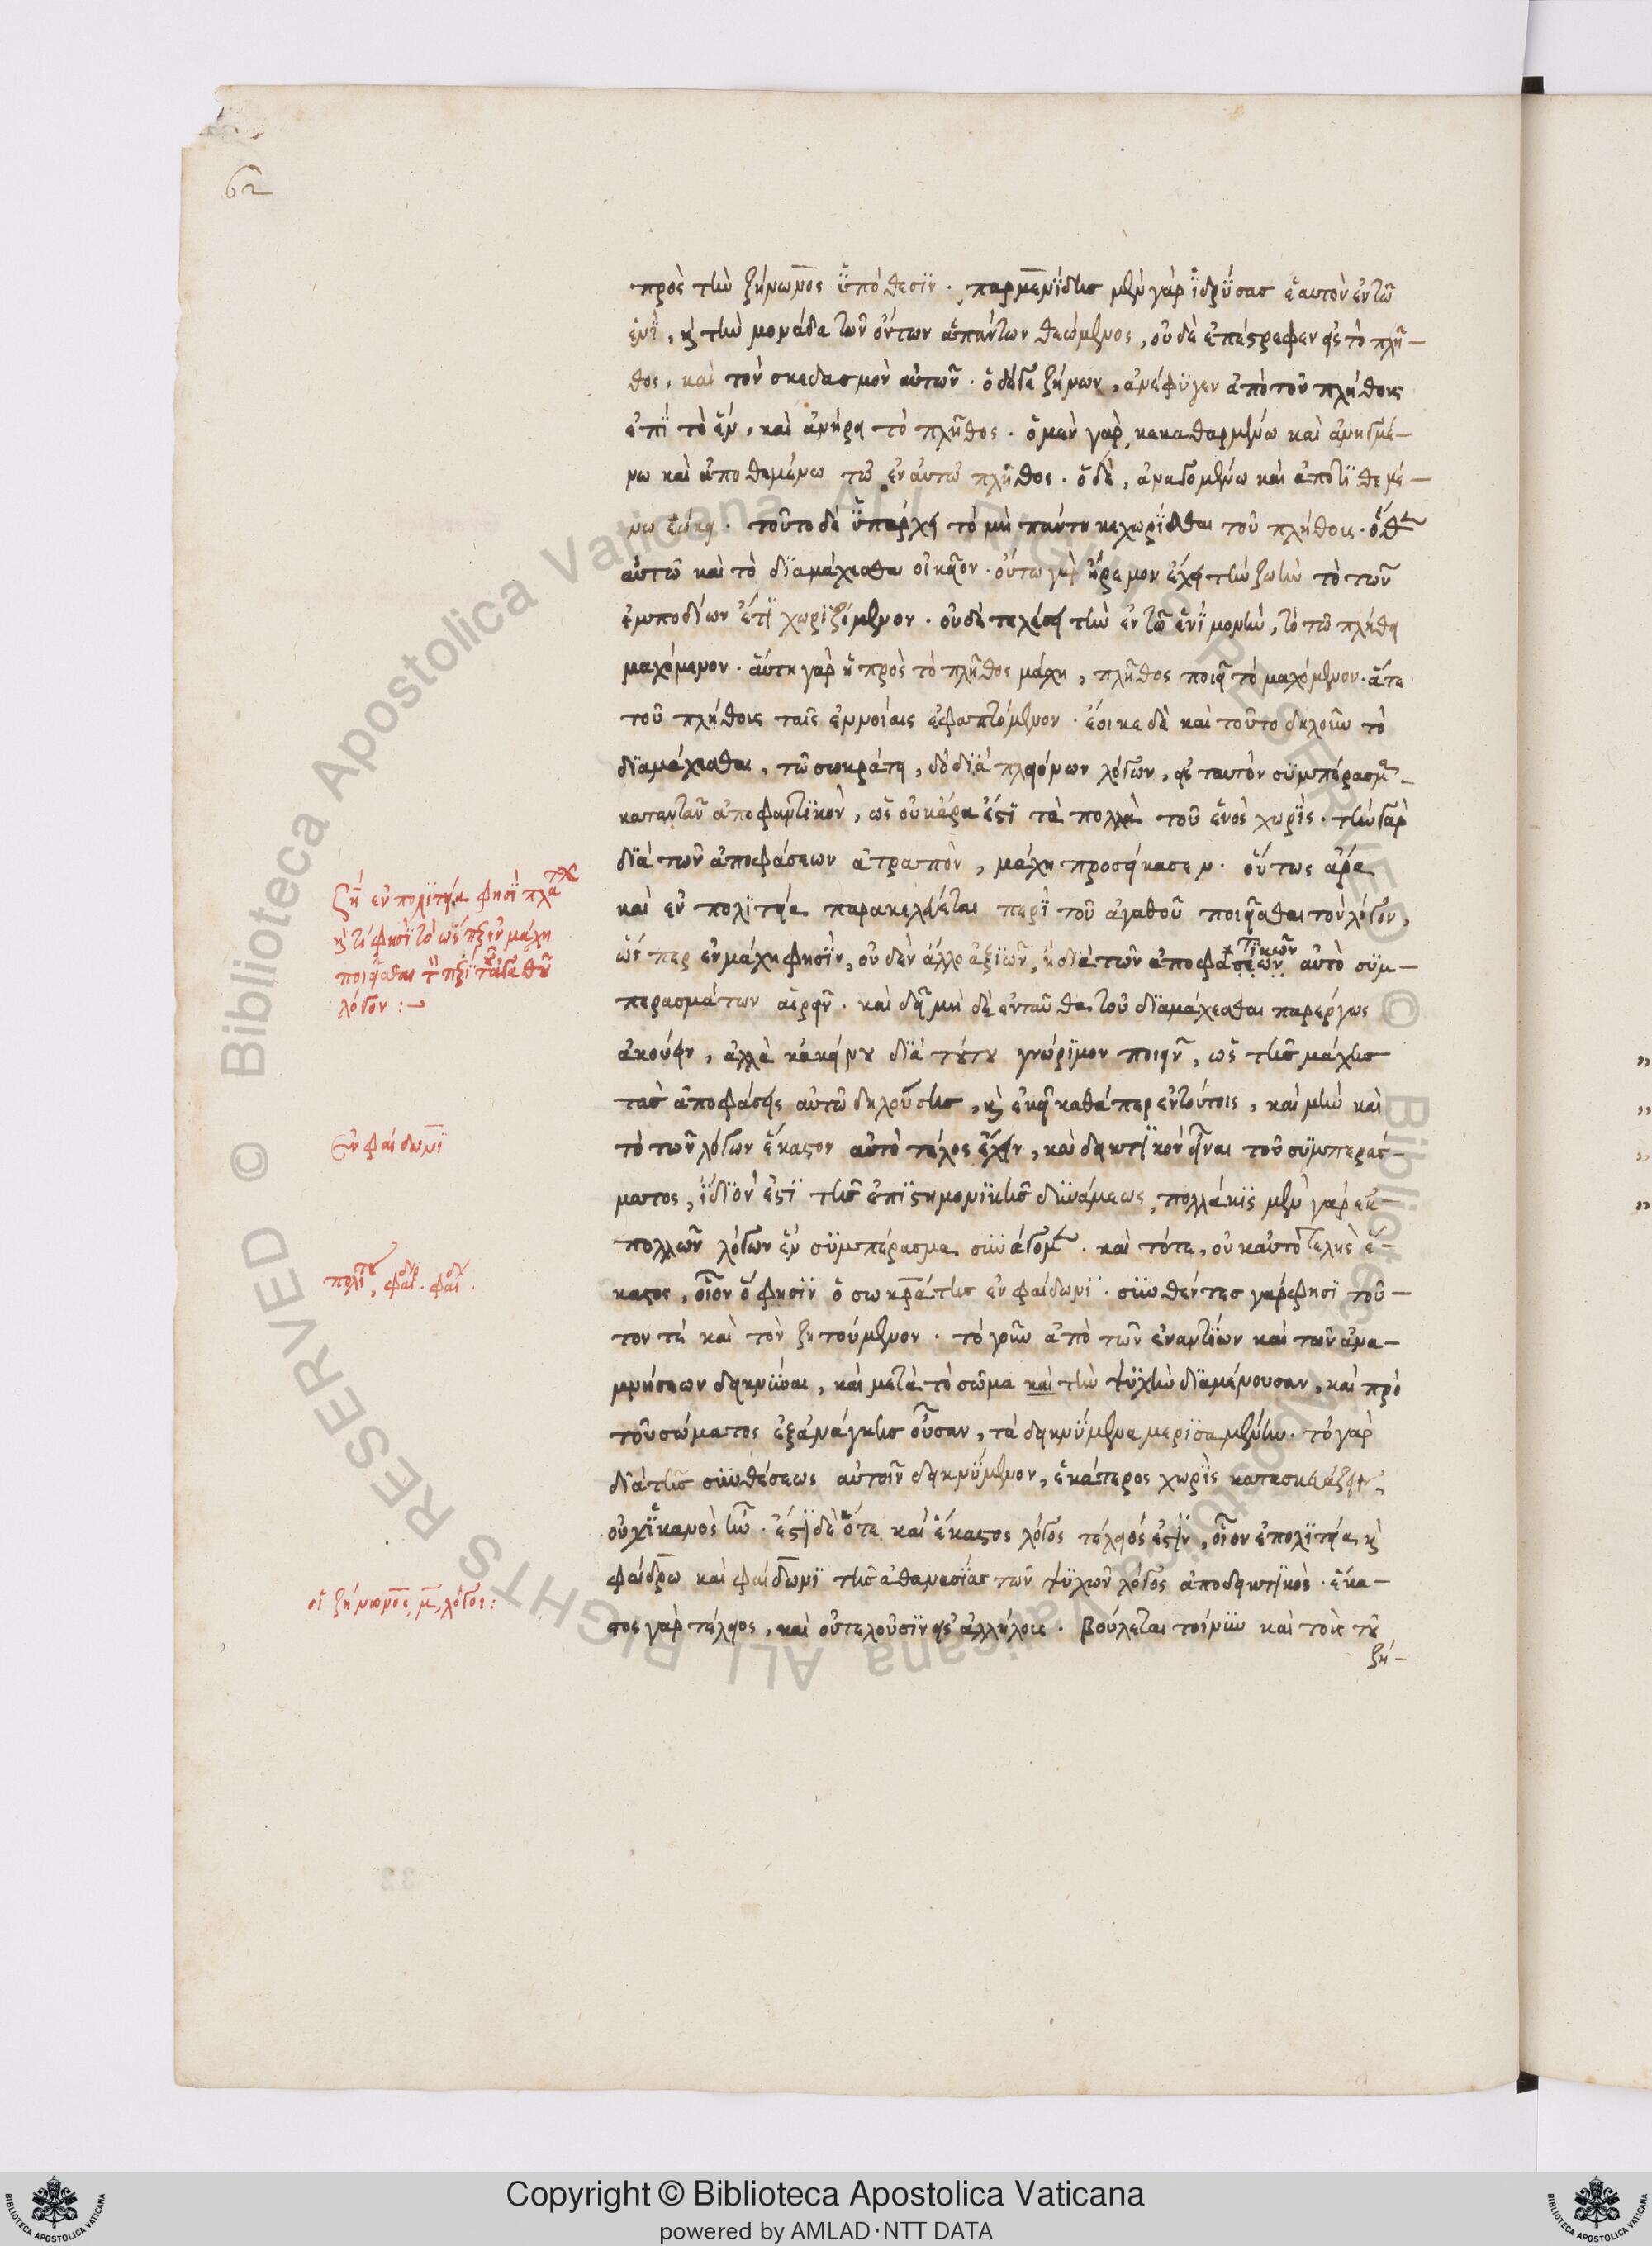 62
πρὸς τὴν ζήνωνος ὑπόθεσιν. παρμενίδης μὲν γὰρ ἱδρύσας ἑαυτὸν ἐν τῶ
ἑνὶ, κὶ τὴν μονάδα τῶν ὄντων ἁπάντων θεώμενος, οὐδὲ ἐπέστρεφεν εἰς τὸ πλῆ-
θος, καὶ τὸν σκεδασμὸν αὐτῶν. ὁ δέγε ζήνων, ἀνέφυγεν ἀπὸ τοῦ πλήθους
ἐπὶ τὸ ἓν, καὶ ἀνήρει τὸ πλῆθος. ὁ μὲν γὰρ, κεκαθαρμένω καὶ ἀνηγμέ-
νω καὶ ἀποθεμένω τῶ ἐν αὐτῶ πλῆθος. ὁ δὲ, ἀναγομένω καὶ ἀποτιθεμέ-
νω ἐώκει. τοῦτο δὲ ὑπάρχει τὸ μὴ πάντη κεχωρίσθαι τοῦ πλήθους. ὅθεν
αὐτῶ καὶ τὸ διαμάχεσθαι οἰκεῖον. οὔτω γὰρ ἤρεμον ἔχει τὴν ζωὴν τὸ τῶν
ἐμποδίων ἔτι χωριζόμενον. οὐδὲ τελέαν τὴν ἐν τῶ ἑνὶ μονὴν, τὸ τῶ πλήθει
μαχόμενον. αὕτη γὰρ ἡ πρὸς τὸ πλῆθος μάχη, πλῆθος ποιεῖ τὸ μαχόμενον. ἅτε
τοῦ πλήθους ταῖς ἐννοίαις ἐφαπτόμενον. ἔοικε δὲ καὶ τοῦτο δηλοῦν τὸ
διαμάχεσθαι, τῶ σωκράτει, τὸ διὰ πλειόνων λόγων, εἰς ταυτὸν συμπέρασμα
καταντᾶν ἀποφαντικὸν, ὡς οὐκ ἄρα ἐστὶ τὰ πολλὰ τοῦ ἑνὸς χωρὶς. τὴν γὰρ
διὰ τῶν ἀποφάσεων ἀτραπὸν, μάχη προσείκασεν. οὕτως ἄρα
καὶ ἐν πολιτεία παρακελεύεται περὶ τοῦ ἀγαθοῦ ποιεῖσθαι τὸν λόγον,
ὥσπερ ἐν μάχη φησὶν, οὐδὲν ἄλλο ἀξιῶν, ἢ διὰ τῶν ἀποφάσεων αὐτὸ συμ-
τικῶν
περασμάτων αἱρεῖν. καὶ δεῖ μὴ δὲ ἐνταῦθα τοῦ διαμάχεσθαι παρέργως
ἀκούειν, ἀλλὰ κἀκείνου διὰ τούτου γνώριμον ποιεῖν, ὡς τῆς μάχης
τὰς ἀποφάσεις αὐτῶ δηλούσης, κὶ ἐκεῖ καθάπερ ἐν τούτοις, καὶ μὴν καὶ
τὸ τῶν λόγων ἕκαστον αὐτὸ τέλος ἔχειν, καὶ δεικτικὸν εἶναι τοῦ συμπεράσ-
ματος, ἴδιόν ἐστι τῆς ἐπιστημονικῆς δυνάμεως, πολλάκις μὲν γὰρ ἐκ
πολλῶν λόγων ἓν συμπέρασμα συνάγομεν. καὶ τότε, οὐκ αὐτοτελὴς ἕ-
καστος, οἷον ὅ φησιν ὁ σωκράτης ἐν φαίδωνι. συνθέντες γὰρ φησὶ τοῦ-
τον τε καὶ τὸν ζητούμενον. τὸ γοῦν ἀπὸ τῶν ἐναντίων καὶ τῶν ἀνα-
μνήσεων δεικνύναι, καὶ μετὰ τὸ σῶμα καὶ τὴν ψυχὴν διαμένουσαν, καὶ πρὸ
τοῦ σώματος ἐξ ἀνάγκης οὖσαν, τὰ δεικνύμενα μερισαμένην. τὸ γὰρ
διὰ τῆς συνθέσεως αὐτοῖν δεικνύμενον, ἑκάτερος χωρὶς κατασκευάζειν,
οὐχ ἱκανὸς ἦν. ἔστι δὲ ὅτε καὶ ἕκαστος λόγος τέλειός ἐστιν, οἷον ἐπολιτεία, κὶ
φαίδρω καὶ φαίδωνι τῆς ἀθανασίας τῶν ψυχῶν λόγος ἀποδεικτικὸς. ἕκα-
στος γὰρ τέλειος, καὶ οὐ τελοῦσιν εἰς ἀλλήλους. βούλεται τοίνυν καὶ τοῖς τοῦ
ζή-
ζή ἐν πολιτεία φησὶ πλάτων
κὶ τί φησὶ τὸ ὥσπερ ἐν μάχη
ποιεῖσθαι τὸν περὶ τἀγαθοῦ
λόγον:
ἐν φαίδωνι
πολιτ, φαιδρ. φαιδ.
οἱ ζήνωνος μ, λόγοι:
Copyright © Biblioteca Apostolica Vaticana
powered by AMLAD·NTT DATA
© Biblioteca Apostolica Vaticana ALL RIGHTS RESERVED